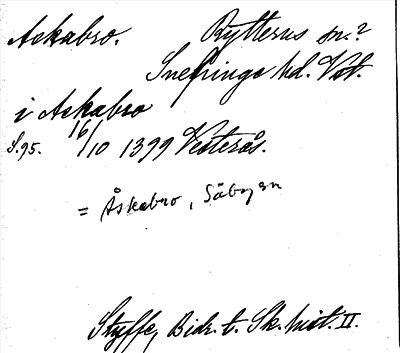 Askabro. Rytterns sn.?
Snefringe hd. Vst.
i Askabro
S.95. 16/10 1399 Vesterås.
= Åskabro, Säby sn
Styffe, Bidr. t. Sk. hist. II.